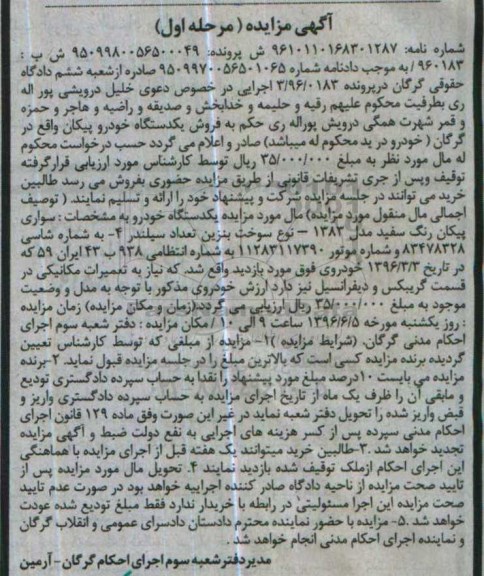 آگهی مزایده (مرحله اول)
شماره نامه: ۹۶۱۰۱۱۰۱۶۸۳۰۱۲۸۷ ش پرونده: ۹۵۰۹۹۸۰۰۵۶۵۰۰۰۴۹ ش ب :
۹۶۰۱۸۳ / به موجب دادنامه شماره ۹۵۰۹۹۷۰۰۵۶۵۰۱۰۶۵ صادره ازشعبه ششم دادگاه
حقوقی گرگان درپرونده ۳/۹۶/۰۱۸۳ اجرایی در خصوص دعوی خلیل درویشی پور اله
ری بطرفیت محکوم علیهم رقیه و حلیمه و خدابخش و صدیقه و راضیه و هاجر و حمزه
و قمر شهرت همگی درویش پوراله ری حکم به فروش یکدستگاه خودرو پیکان واقع در
گرگان ( خودرو در ید محکوم له میباشد) صادر و اعلام می گردد حسب درخواست محکوم
له مال مورد نظر به مبلغ ۳۵/۰۰۰/۰۰۰ ریال توسط کارشناس مورد ارزیابی قرارگرفته
توقیف وپس از جری تشریفات قانونی از طریق مزایده حضوری بفروش می رسد طالبین
خرید می توانند در جلسه مزایده شرکت و پیشنهاد خود را ارائه و تسلیم نمایند. ( توصیف
اجمالی مال منقول مورد مزایده) مال مورد مزایده یکدستگاه خودرو به مشخصات : سواری
پیکان رنگ سفید مدل ۱۳۸۳ – نوع سوخت بنزین تعداد سیلندر ۴- به شماره شاسی
۸۳۴۷۸۳۲۸ و شماره موتور ۱۱۲۸۳۱۱۷۳۹۰ به شماره انتظامی ۹۳۸ ب ۴۳ ایران ۵۹ که
در تاریخ ۱۳۹۶/۳/۳ خودروی فوق مورد بازدید واقع شد. که نیاز به تعمیرات مکانیکی در
قسمت گریبکس و دیفرانسیل نیز دارد ارزش خودروی مذکور با توجه به مدل و وضعیت
موجود به مبلغ ۳۵/۰۰۰/۰۰۰ ریال ارزیابی می گردد.(زمان و مکان مزایده) زمان مزایده
: روز یکشنبه مورخه ۱۳۹۶/۶/۵ ساعت ۹ الی ۱۰ / مکان مزایده : دفتر شعبه سوم اجرای
احکام مدنی گرگان. (شرایط مزایده )۱- مزایده از مبلغی که توسط کارشناس تعیین
گردیده برنده مزایده کسی است که بالاترین مبلغ را در جلسه مزایده قبول نماید. ۲-برنده
مزایده می بایست ۱۰درصد مبلغ مورد پیشنهاد را نقدا به حساب سپرده دادگستری تودیع
و مابقی آن را ظرف یک ماه از تاریخ اجرای مزایده به حساب سپرده دادگستری واریز و
قبض واریز شده را تحویل دفتر شعبه نماید در غیر این صورت وفق ماده ۱۲۹ قانون اجرای
احکام مدنی سپرده پس از کسر هزینه های اجرایی به نفع دولت ضبط و آگهی مزایده
تجدید خواهد شد .۳-طالبین خرید میتوانند یک هفته قبل از اجرای مزایده با هماهنگی
این اجرای احکام ازملک توقیف شده بازدید نمایند ۴. تحویل مال مورد مزایده پس از
تایید صحت مزایده از ناحیه دادگاه صادر کننده اجراییه خواهد بود در صورت عدم تایید
صحت مزایده این اجرا مسئولیتی در رابطه با خریدار ندارد فقط مبلغ تودیع شده عودت
خواهد شد .۵- مزایده با حضور نماینده محترم دادستان دادسرای عمومی و انقلاب گرگان
و نماینده اجرای احکام مدنی انجام خواهد شد .
مدیردفترشعبه سوم اجرای احکام گرگان – آرمین